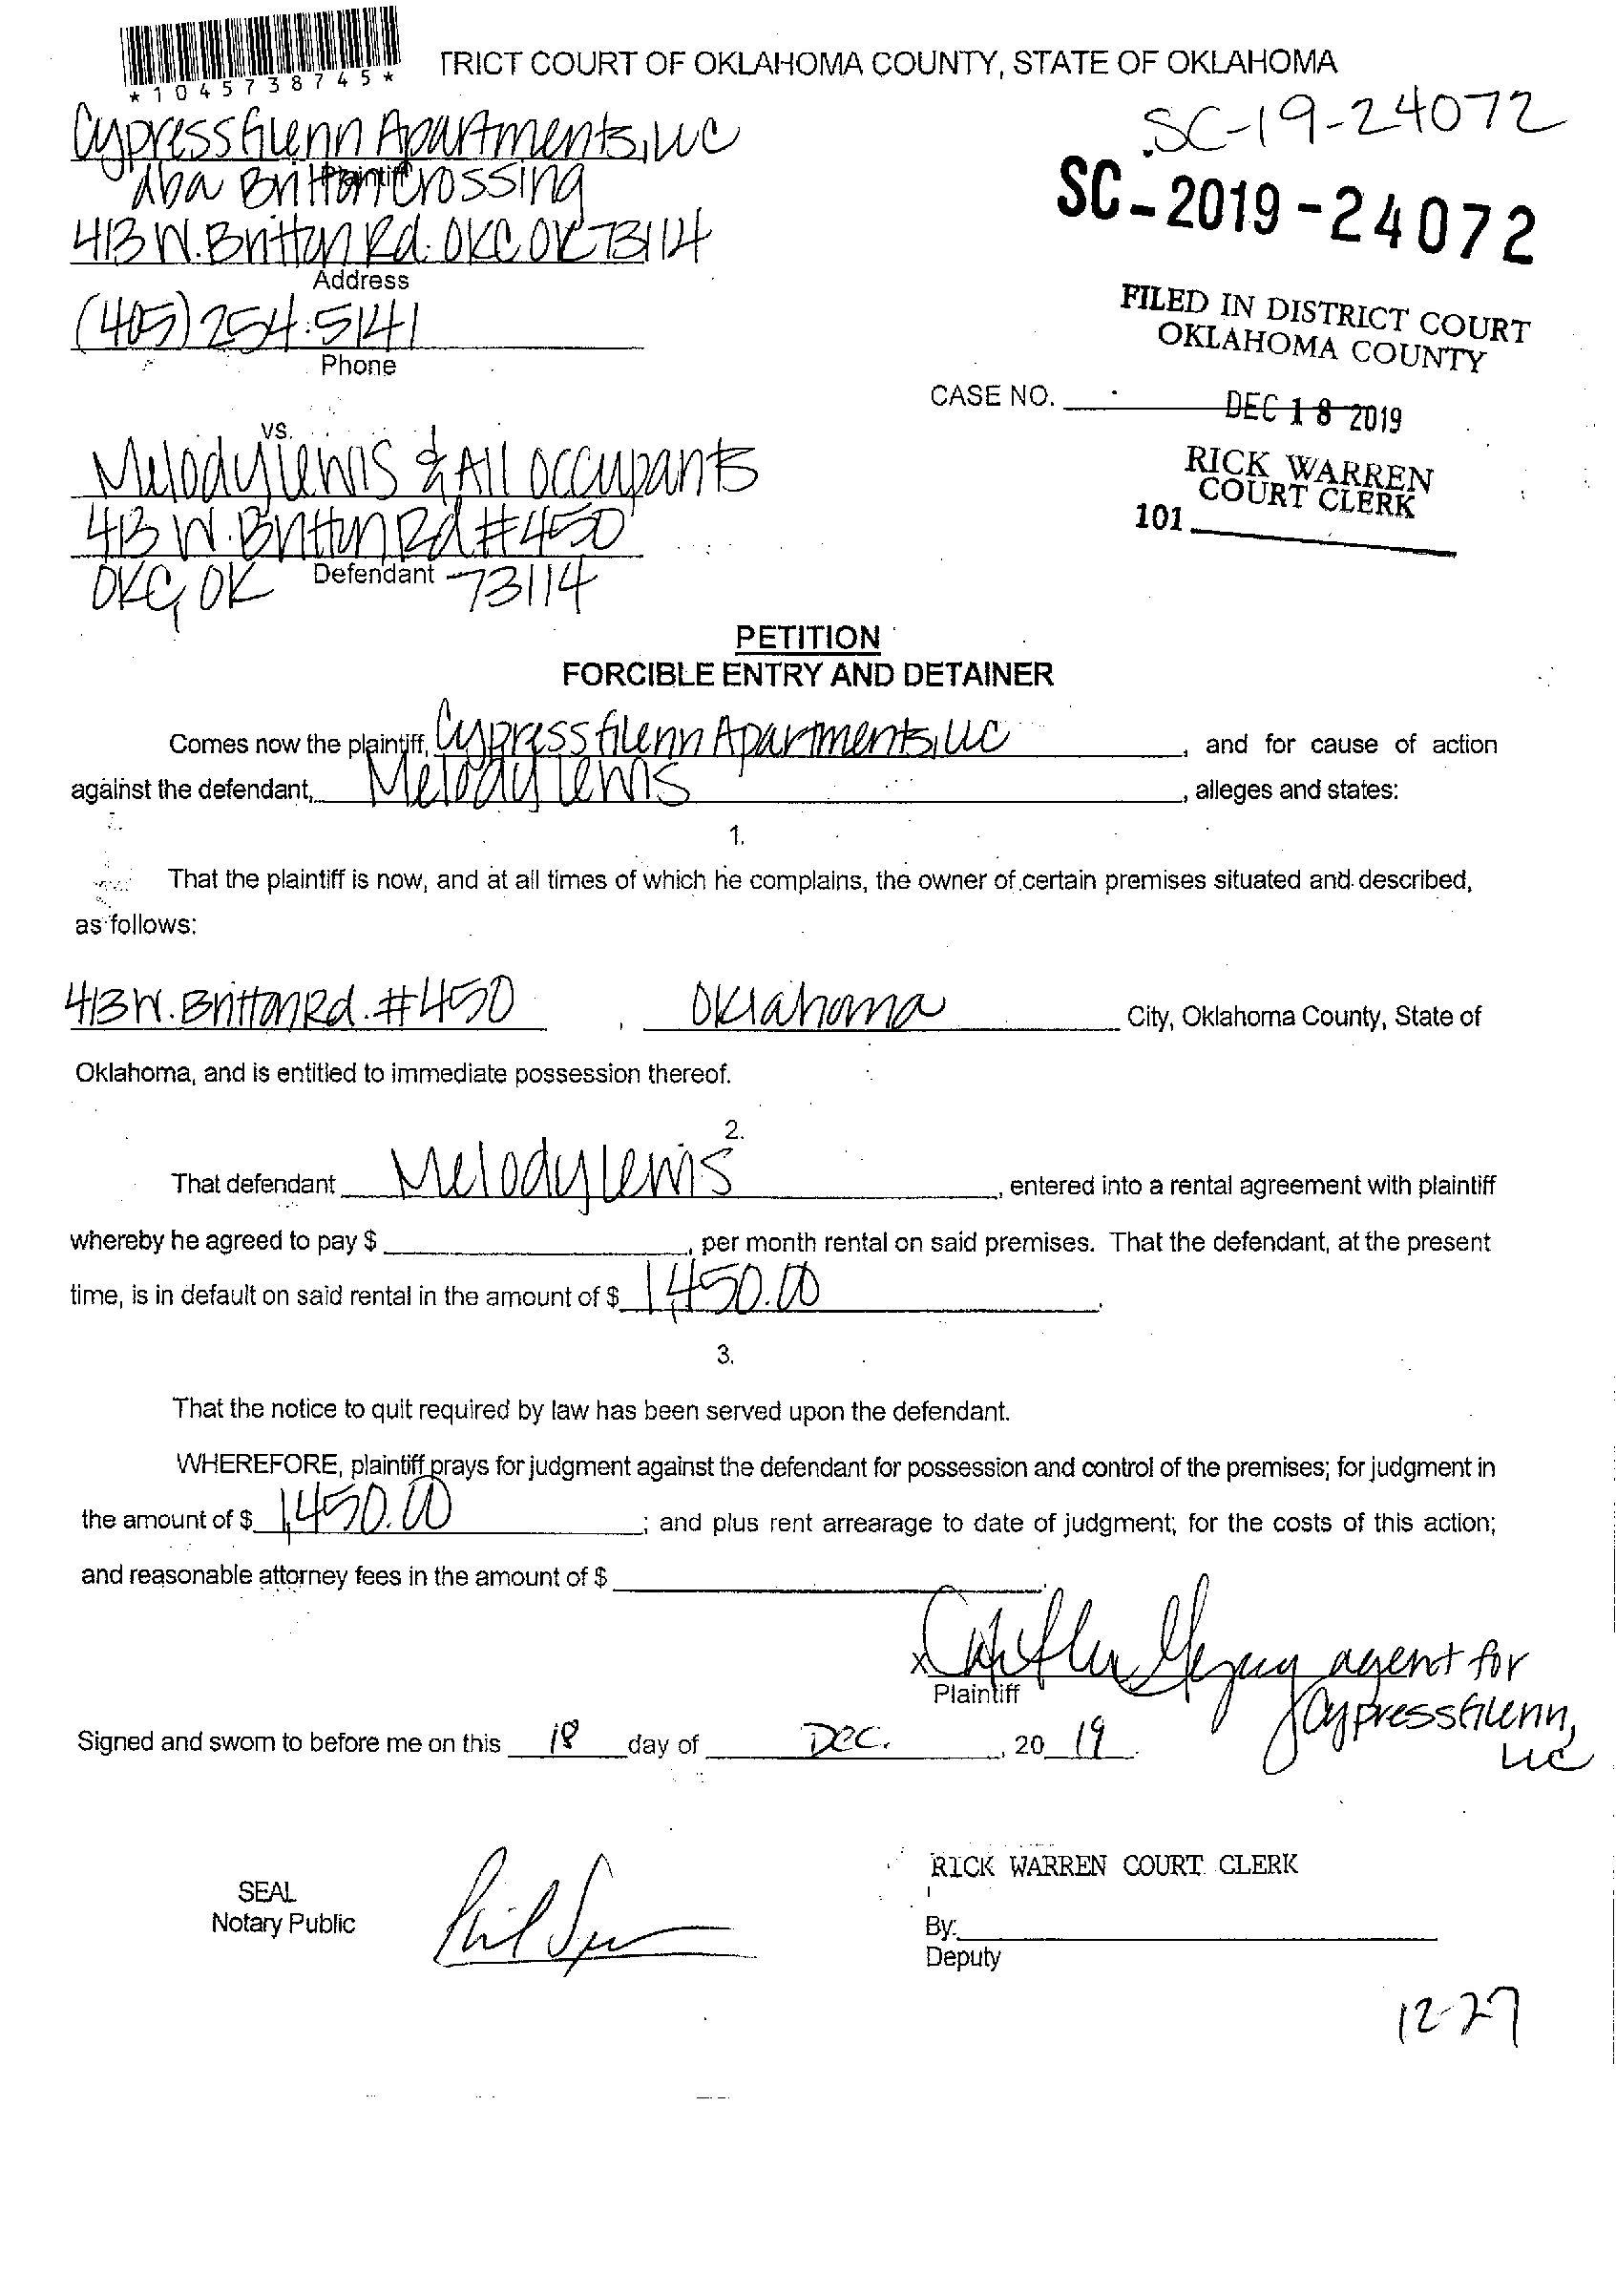 *1045738745*
TRICT COURT OF OKLAHOMA COUNTY, STATE OF OKLAHOMA
SC-19-24072
Cypress Glenn Apartments, LLC
dba Britton Crossing
Plaintiff
SC-2019-24072
413 W. Britton Rd. OKC OK 73114
Address
(405) 254-5141
Phone
FILED IN DISTRICT COURT
OKLAHOMA COUNTY
CASE NO.
DEC 18 2019
RICK WARREN
COURT CLERK
101
vs.
Melody Lewis & All occupants
413 W. Britton Rd #450
Defendant
OKC, OK 73114
PETITION
FORCIBLE ENTRY AND DETAINER
Comes now the plaintiff, Cypress Glenn Apartments, LLC, and for cause of action
against the defendant, Melody Lewis, alleges and states:
1.
That the plaintiff is now, and at all times of which he complains, the owner of certain premises situated and described,
as follows:
413 W. Britton Rd. #450, Oklahoma City, Oklahoma County, State of
Oklahoma, and is entitled to immediate possession thereof.
2.
That defendant Melody Lewis, entered into a rental agreement with plaintiff
whereby he agreed to pay $ , per month rental on said premises. That the defendant, at the present
time, is in default on said rental in the amount of $ 1,450.00.
3.
That the notice to quit required by law has been served upon the defendant.
WHEREFORE, plaintiff prays for judgment against the defendant for possession and control of the premises; for judgment in
the amount of $ 1,450.00; and plus rent arrearage to date of judgment; for the costs of this action;
and reasonable attorney fees in the amount of $ .
x agent for
Plaintiff
Cypress Glenn,
LLC
Signed and sworn to before me on this 18 day of Dec., 20 19.
RICK WARREN COURT CLERK
SEAL
Notary Public
By:
Deputy
12-27